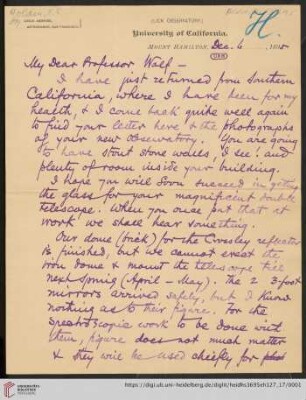 LICK OBSERVATORY
University of California.
H.
MOUNT HAMILTON, Dec. 6 1895
My Dear Professor Wolf —
I have just returned from Southern
California, where I have been for my
health, & I come back quite well again
to find your letter here & the photographs
of your new observatory. You are going
to have stout stone walls, I see! and
plenty of room inside your building.
I hope you will soon succeed in getting
the glass for your magnificent double
telescope. When you once put that at
work we shall hear something.
Our dome (brick) for the Crossley reflector
is finished, but we cannot erect the
iron dome & mount the telescope till
next spring (April – May). The 2 3-foot
mirrors arrived safely, but I know
nothing as to their figure. For the
spectroscopic work to be done with
them, figure does not much matter
& they will be used chiefly for
https://digi.ub.uni-heidelberg.de/diglit/heidhs3695ch127_17/0001